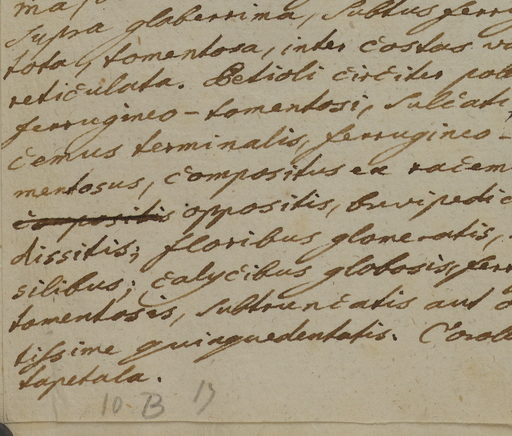 supra glaberrima, subtus ferru
tota, tomentosa, inter costas va
reticulata. Petioli circiter pol
ferrugineo-tomentosi, sulcati,
cemus terminalis, ferrugineo-
mentosus, compositus ex racem
compositis oppositis, brevipedic
dissitis; floribus glomeratis,
silibus; calycibus globosis, ferr
tomentosis, subtruncatis aut o
tissime quinquedentatis. Corol
tapetala.
10-B 13